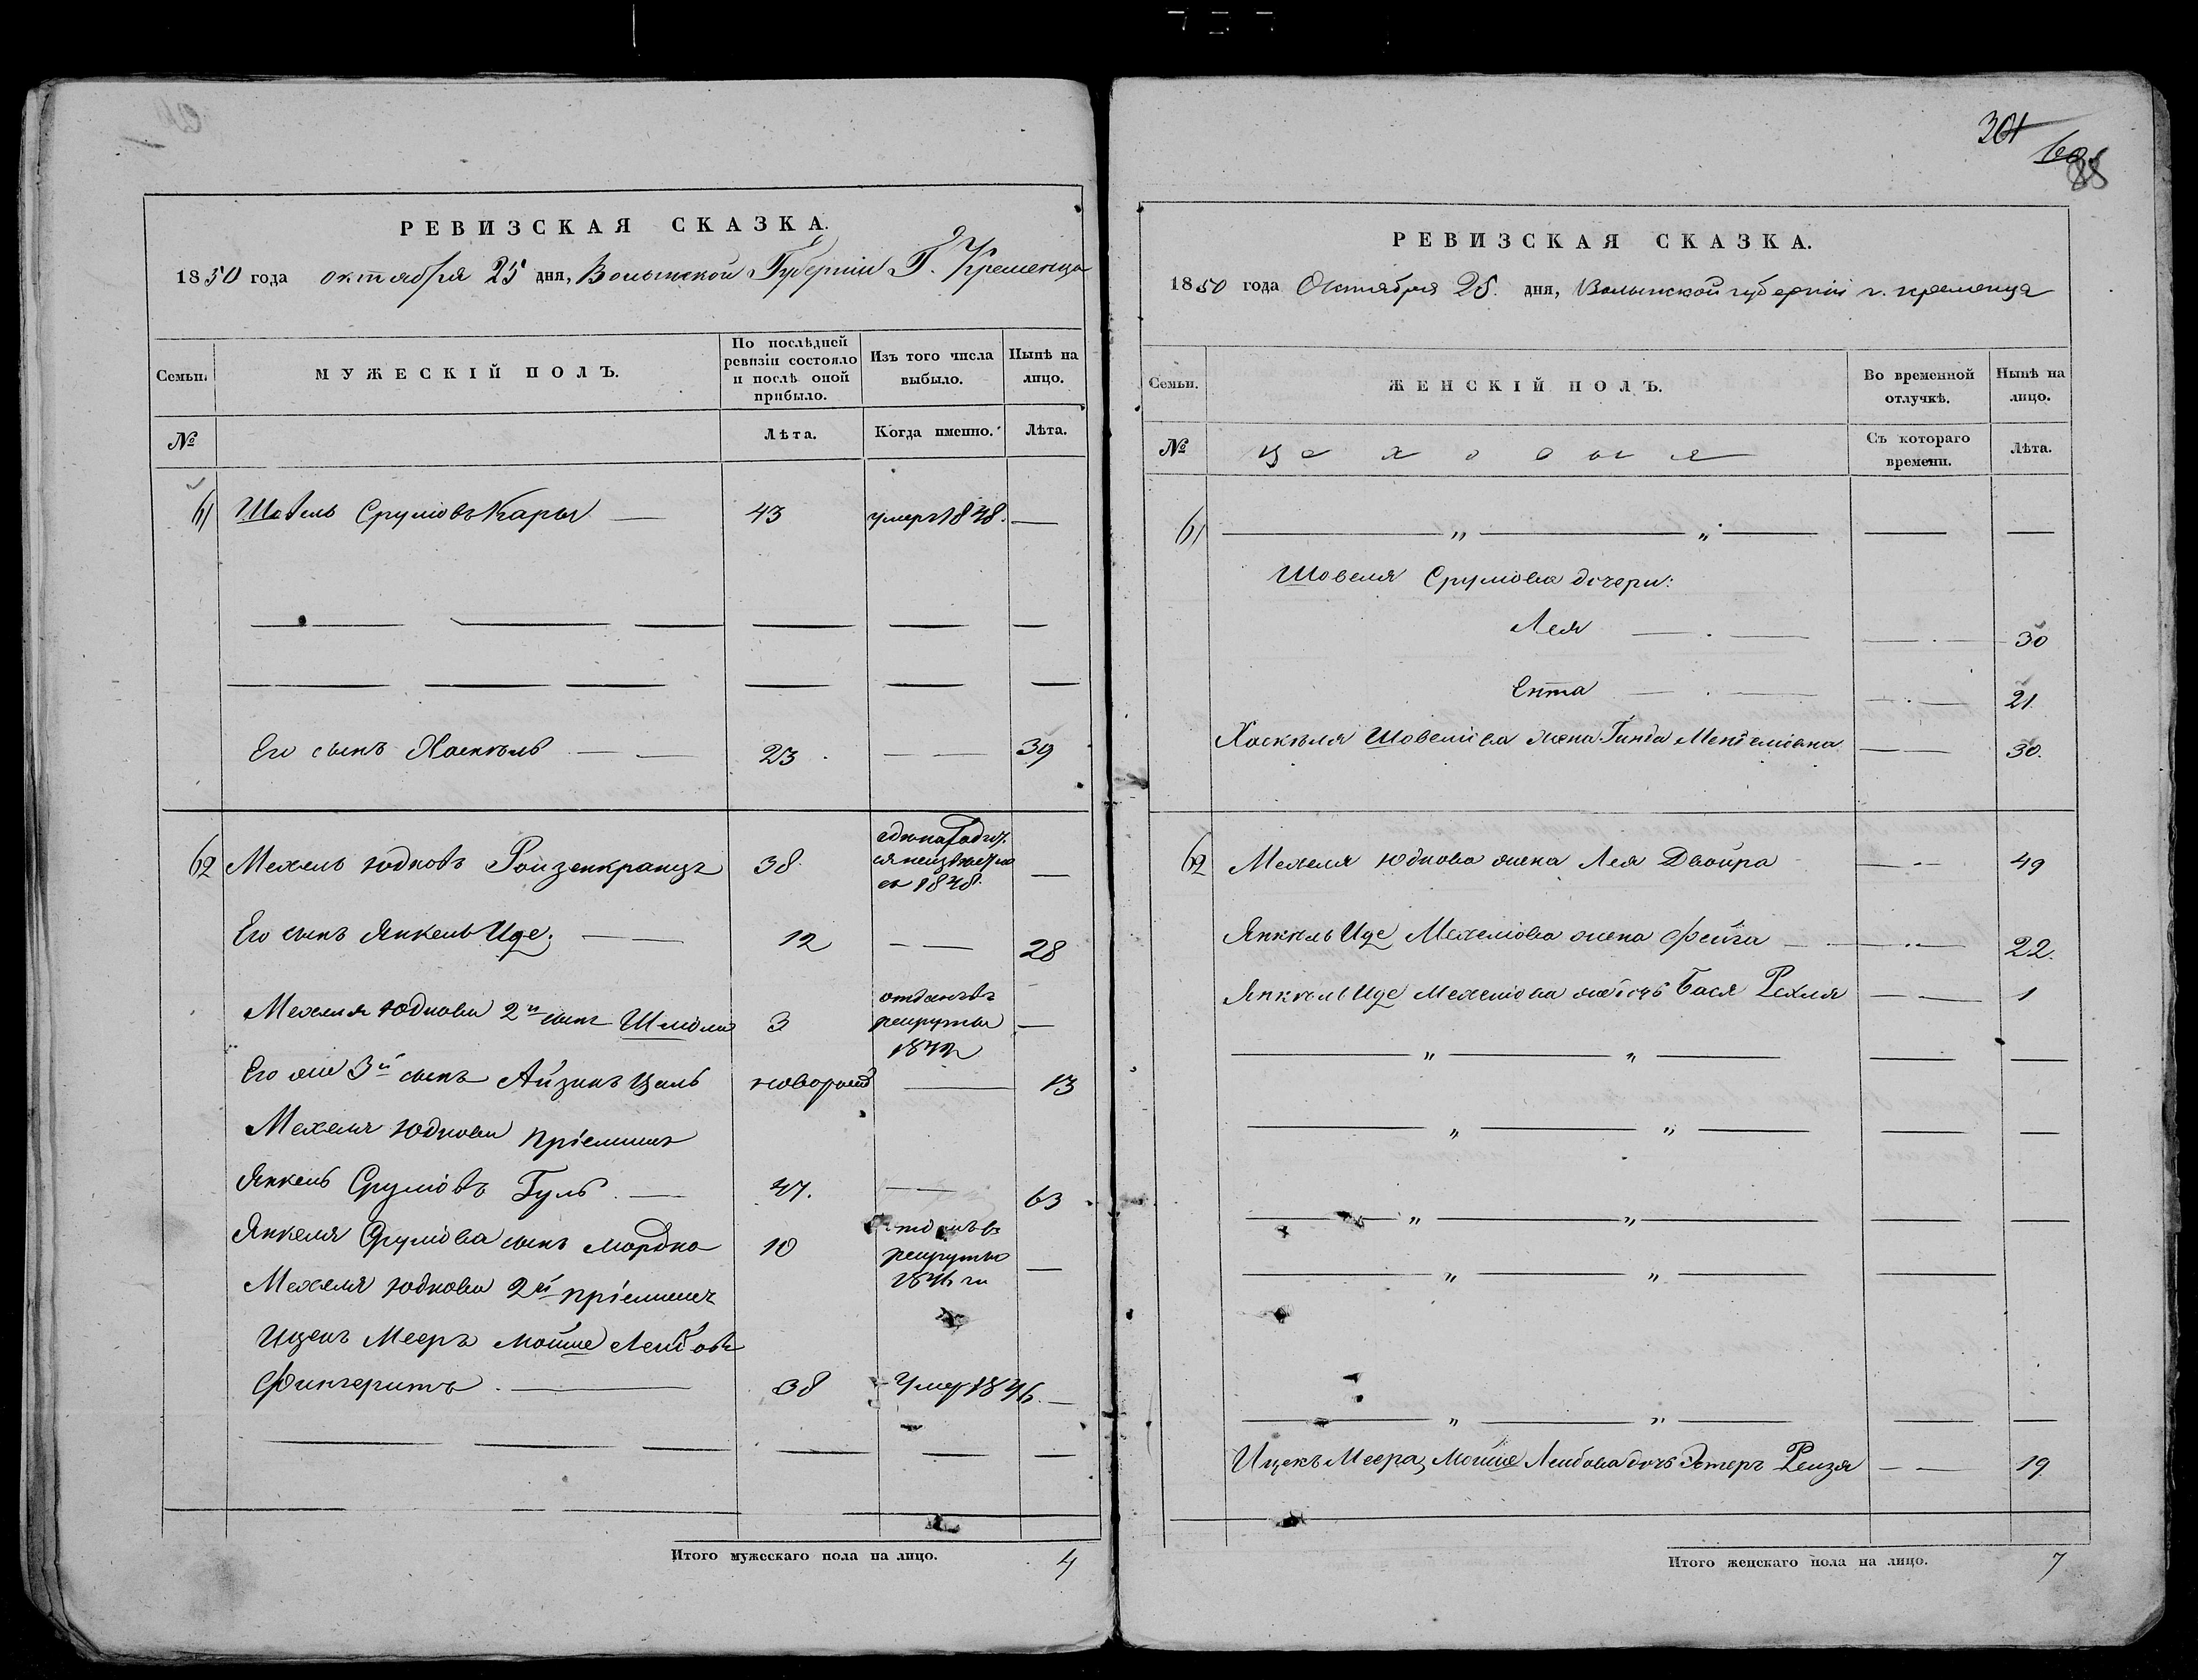 РЕВИЗСКАЯ СКАЗКА.
1850 года октября 25 дня, Волынской Губернии Г. Кременца
Семьи.
МУЖЕСКІЙ ПОЛЪ.
По послѣдней ревизіи состояло и послѣ оной прибыло.
Изъ того числа выбыло.
Нынѣ на лицо.
№
Лѣта.
Когда именно.
Лѣта.
61 Шовель Срулiовъ Кары — 43 умеръ 1848. —
Его сынъ Хаскель — — 23 — — 39
62 Мехель Юдковъ Ройзенкранцъ 38 —
неизвѣстно
съ 1848.
Его сынъ Янкель Ице. — 12 — — 28
Мехеля Юдкова 2й сынъ Шмоль 3 отданъ въ рекруты —
Его же 3й сынъ Айзикъ Цаль новорожд — 13
Мехеля Юдкова пріемышъ
Янкель Срулiовъ Гуль — 47. — 63
Янкеля Срулiова сынъ Мордко 10 рекруты —
Мехеля Юдкова 2й пріемышъ
Ицекъ Мееръ Мойше Лейбовъ
Фингерить — 38 Умеръ 1846. —
Итого мужескаго пола на лицо. 4
301
88
РЕВИЗСКАЯ СКАЗКА.
1850 года Октября 25. дня, Волынской губерніи г. кременца
Семьи.
ЖЕНСКІЙ ПОЛЪ.
Во временной отлучкѣ.
Нынѣ на лицо.
№
Цеховыя
Съ котораго времени.
Лѣта.
61 — „ — „ — — —
Шовеля Срулiова дочери:
Лея — . — — . — 30
Ента — . — — . — 21
Хаскеля Шовелiова жена Гинда Менделiовна — — 30.
62 Мехеля Юдкова жена Лея Двойра — .. — 49
Янкель Ице Мехелiова жена Фейга — — .. — 22.
Янкель Ице Мехелiова дочь Бася Рехля — — 1
— „ — „ — — —
— „ — „ — — —
— „ — „ — — —
— „ — „ — —
— „ — „ — — —
Ицекъ Меера, Мойше Лейбова дочь Эстеръ Рейзя — — 19
Итого женскаго пола на лицо. 7